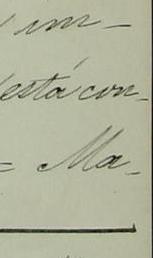 im-
está con-
- Ma-